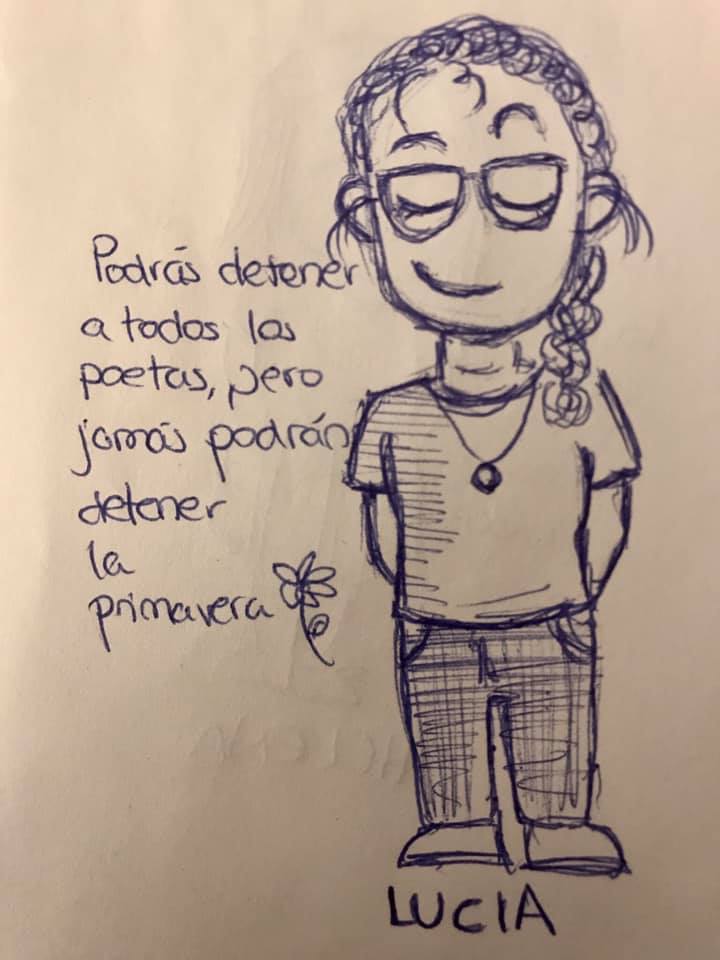 Podrás detener
a todos los
poetas, pero
jamás podrán
detener
la
primavera
LUCIA